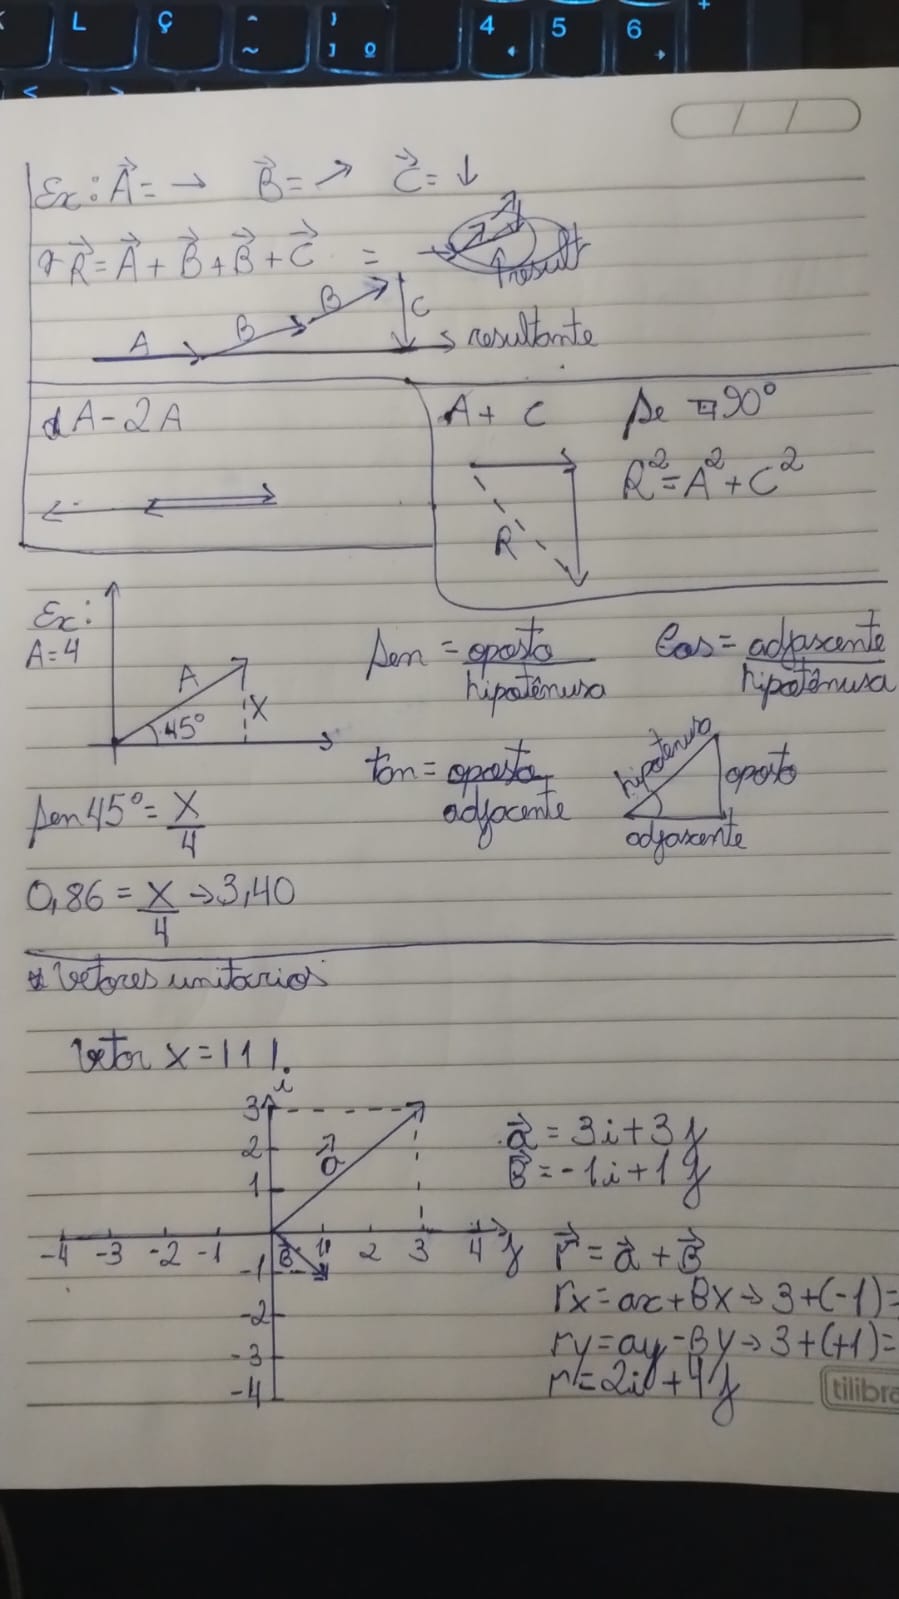 L Ç ^ ~ } ] º 4 5 6 +
< >
Ex: A⃗ = → B⃗ = ↗ C⃗ = ↓
R⃗ = A⃗ + B⃗ + B⃗ + C⃗ =
result
A B B C resultante
A - 2A
A + C
Se 90°
R² = A² + C²
R
Ex:
A=4
A
45°
X
sen = oposto/hipotênusa
cos = adjascente/hipotênusa
tan = oposto/adjacente
hipotenusa
oposto
adjascente
sen 45° = X/4
0,86 = X/4 → 3,40
* Vetores unitarios
Vetor x = |1|
i
3
2
1
a⃗
-4 -3 -2 -1 B⃗ 1 2 3 4 j
-1
-2
-3
-4
a⃗ = 3i + 3j
B⃗ = -1i + 1j
r⃗ = a⃗ + B⃗
rx = ax + Bx → 3 + (-1) =
ry = ay - By → 3 + (+1) =
r = 2i + 4j
tilibra